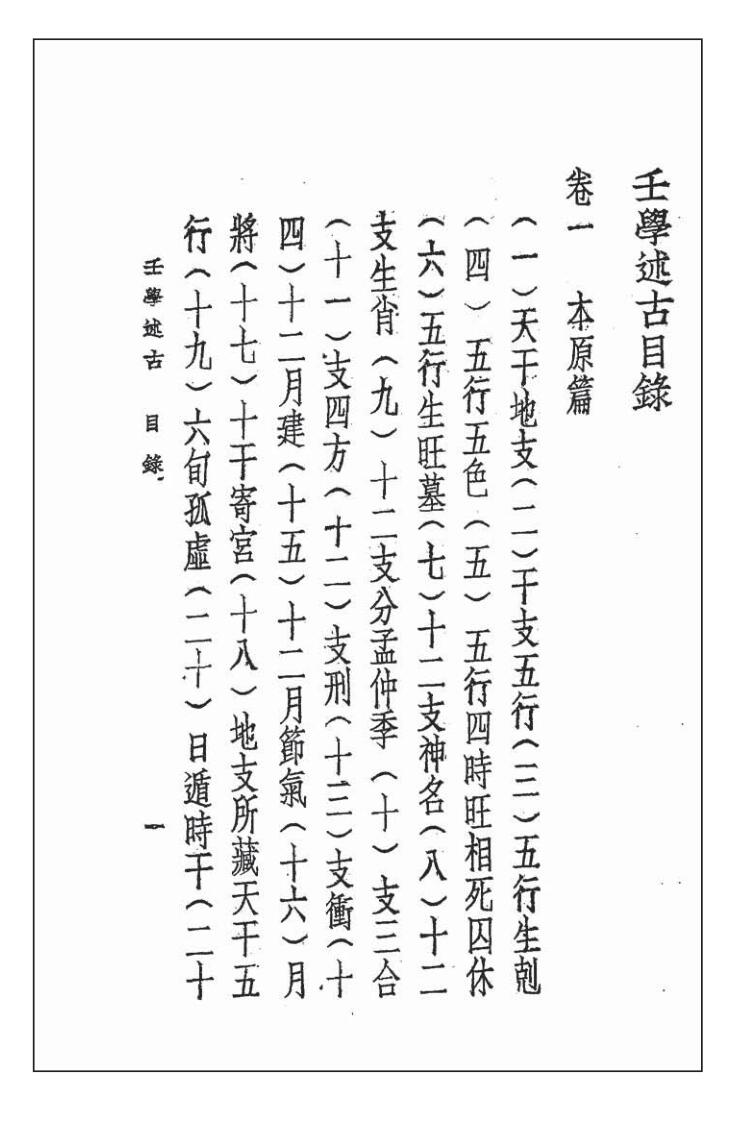 壬學述古目錄
卷一　本原篇
（一）天干地支（二）干支五行（三）五行生剋
（四）五行五色（五）五行四時旺相死囚休
（六）五行生旺墓（七）十二支神名（八）十二
支生肖（九）十二支分孟仲季（十）支三合
（十一）支四方（十二）支刑（十三）支衝（十
四）十二月建（十五）十二月節氣（十六）月
將（十七）十干寄宮（十八）地支所藏天干五
行（十九）六旬孤虛（二十）日遁時干（二十
壬學述古　目錄　一